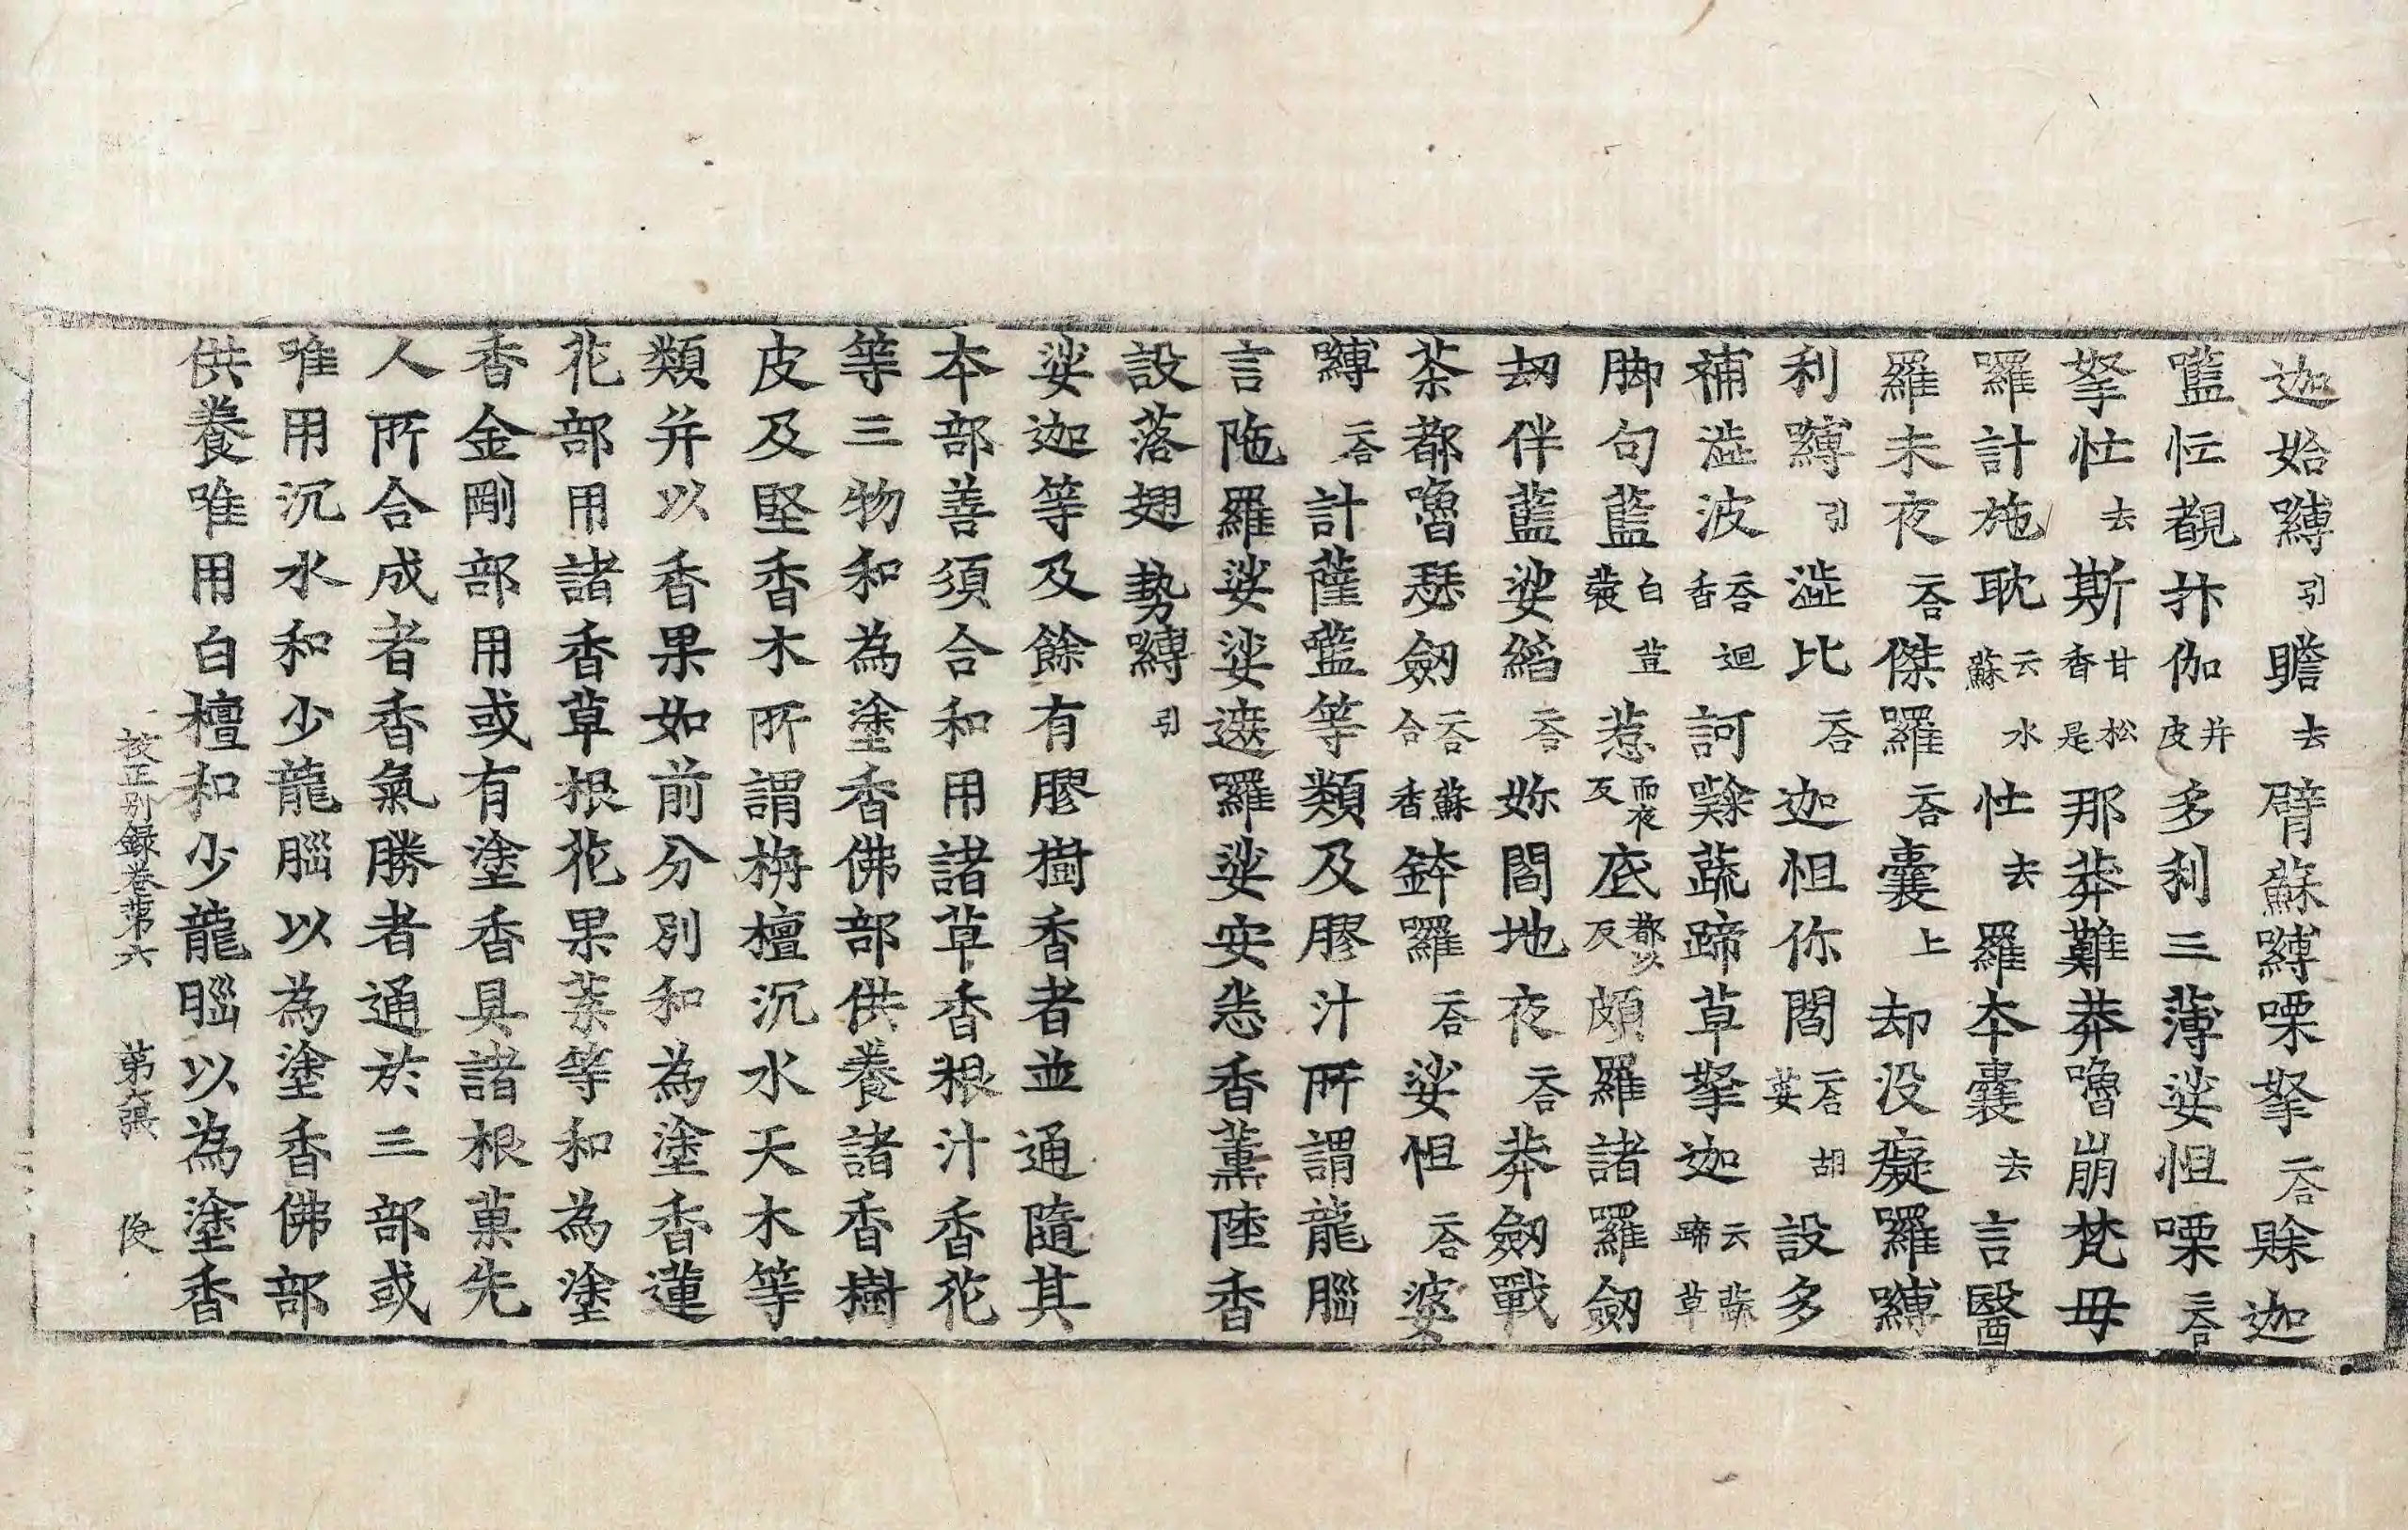 迦始嚩引瞻去臂蘇嚩㗚拏二合賖迦
㘕㤮覩抃伽并皮多利三薄娑怛㗚二合
拏㤮去斯甘松香是那莽難莽嚕崩梵毋
囉計施耽云水蘇㤮去羅本囊去言醫
羅未夜二合傑羅二合囊上却没癡羅嚩
利嚩引澁比二合迦怛你閻二合胡荽設多
補澁波二合迴香訶㗨蔬蹄草拏迦云蔬蹄草
脚句藍白荳蔻惹而夜反底都以反頗羅諸羅劒
刼伴藍娑縚二合妳閻地夜二合莽劒戰
荼都嚕瑟劒二合蘇合香鉢囉二合娑怛二合婆
嚩二合計薩㘕等類及膠汁所謂龍腦
言陁羅娑娑遮羅娑安悉香薰陸香
設落翅勢嚩引
娑迦等及餘有膠樹香者並通隨其
本部善須合和用諸草香根汁香花
等三物和為塗香佛部供養諸香樹
皮及堅香木所謂栴檀沉水天木等
類并以香果如前分別和為塗香蓮
花部用諸香草根花果葉等和為塗
香金剛部用或有塗香具諸根菓先
人所合成者香氣勝者通於三部或
唯用沉水和少龍腦以為塗香佛部
供養唯用白檀和少龍腦以為塗香
校正別錄卷第六 第六張 俊